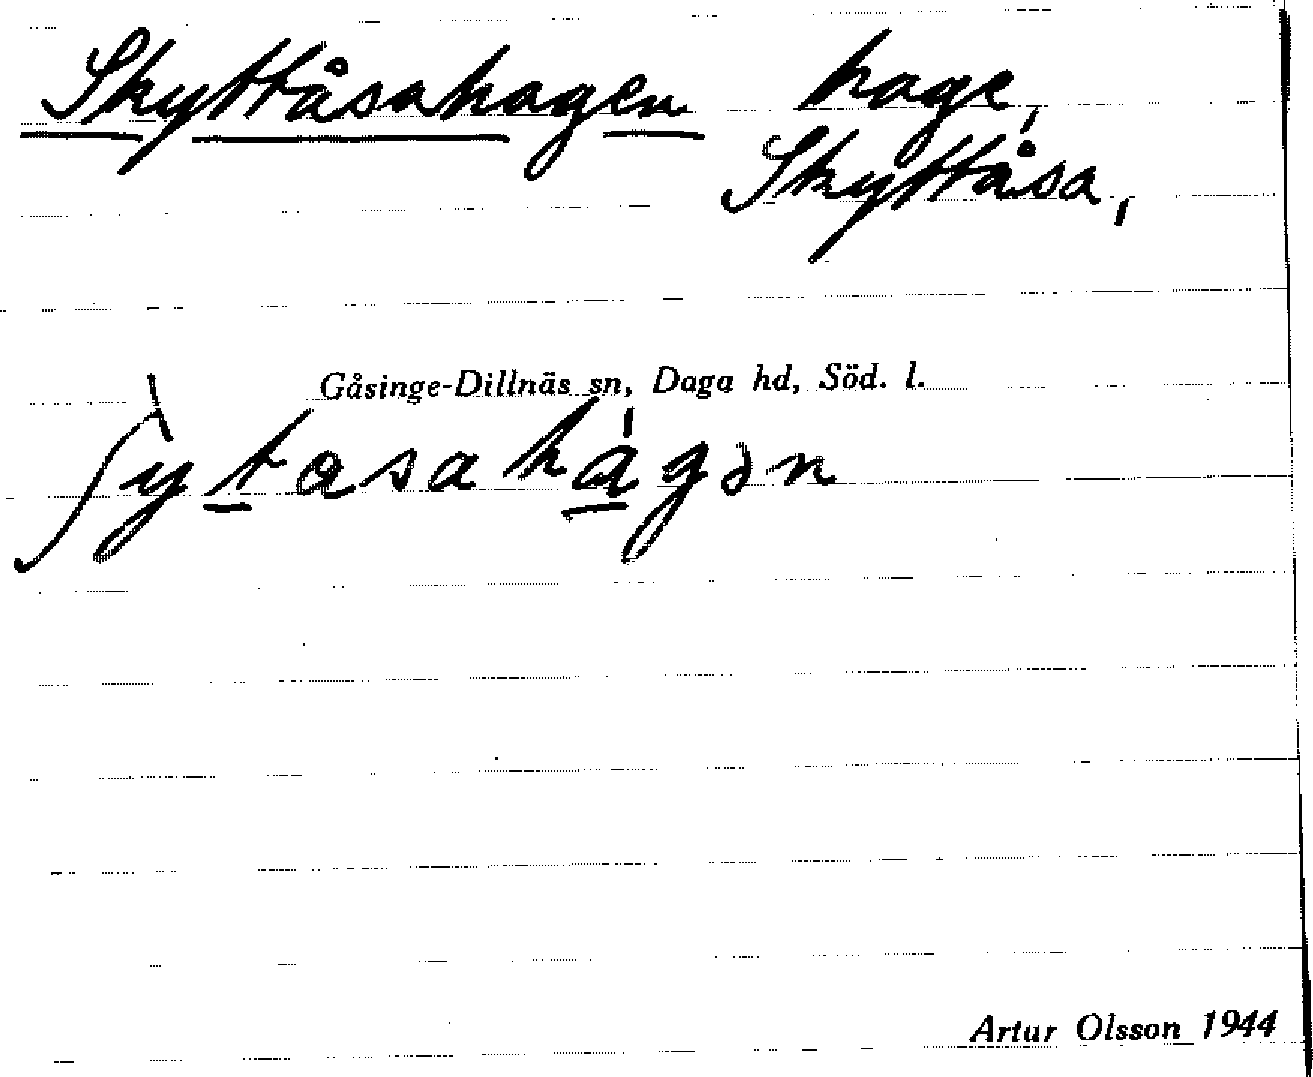 Skyttåsahagen hage,
Skyttåsa,
Gåsinge-Dillnäs sn, Daga hd, Söd. l.
ʃỳt̲asahá̲gən
Artur Olsson 1944